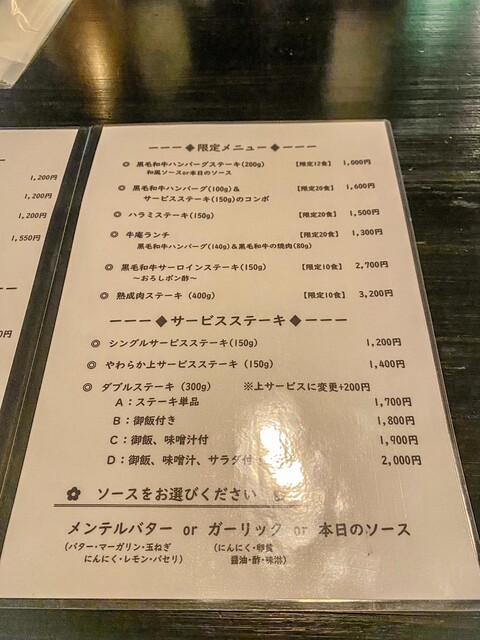 1,200円
1,200円
1,200円
1,550円
0円
ーーー◆限定メニュー◆ーーー
◎ 黒毛和牛ハンバーグステーキ(200g) 【限定12食】 1,000円
和風ソースor本日のソース
◎ 黒毛和牛ハンバーグ(100g)&
サービスステーキ(150g)のコンボ 【限定20食】 1,600円
◎ ハラミステーキ(150g) 【限定20食】 1,500円
◎ 牛庵ランチ 【限定20食】 1,300円
黒毛和牛ハンバーグ(140g)&黒毛和牛の焼肉(80g)
◎ 黒毛和牛サーロインステーキ(150g) 【限定10食】 2,700円
〜おろしポン酢〜
◎ 熟成肉ステーキ(400g) 【限定10食】 3,200円
ーーー◆サービスステーキ◆ーーー
◎ シングルサービスステーキ(150g) 1,200円
◎ やわらか上サービスステーキ(150g) 1,400円
◎ ダブルステーキ(300g) ※上サービスに変更+200円
A:ステーキ単品 1,700円
B:御飯付き 1,800円
C:御飯、味噌汁付 1,900円
D:御飯、味噌汁、サラダ付 2,000円
✿ ソースをお選びください ✿
メンテルバター or ガーリック or 本日のソース
(バター・マーガリン・玉ねぎ (にんにく・卵黄
にんにく・レモン・パセリ) 醤油・酢・味淋)